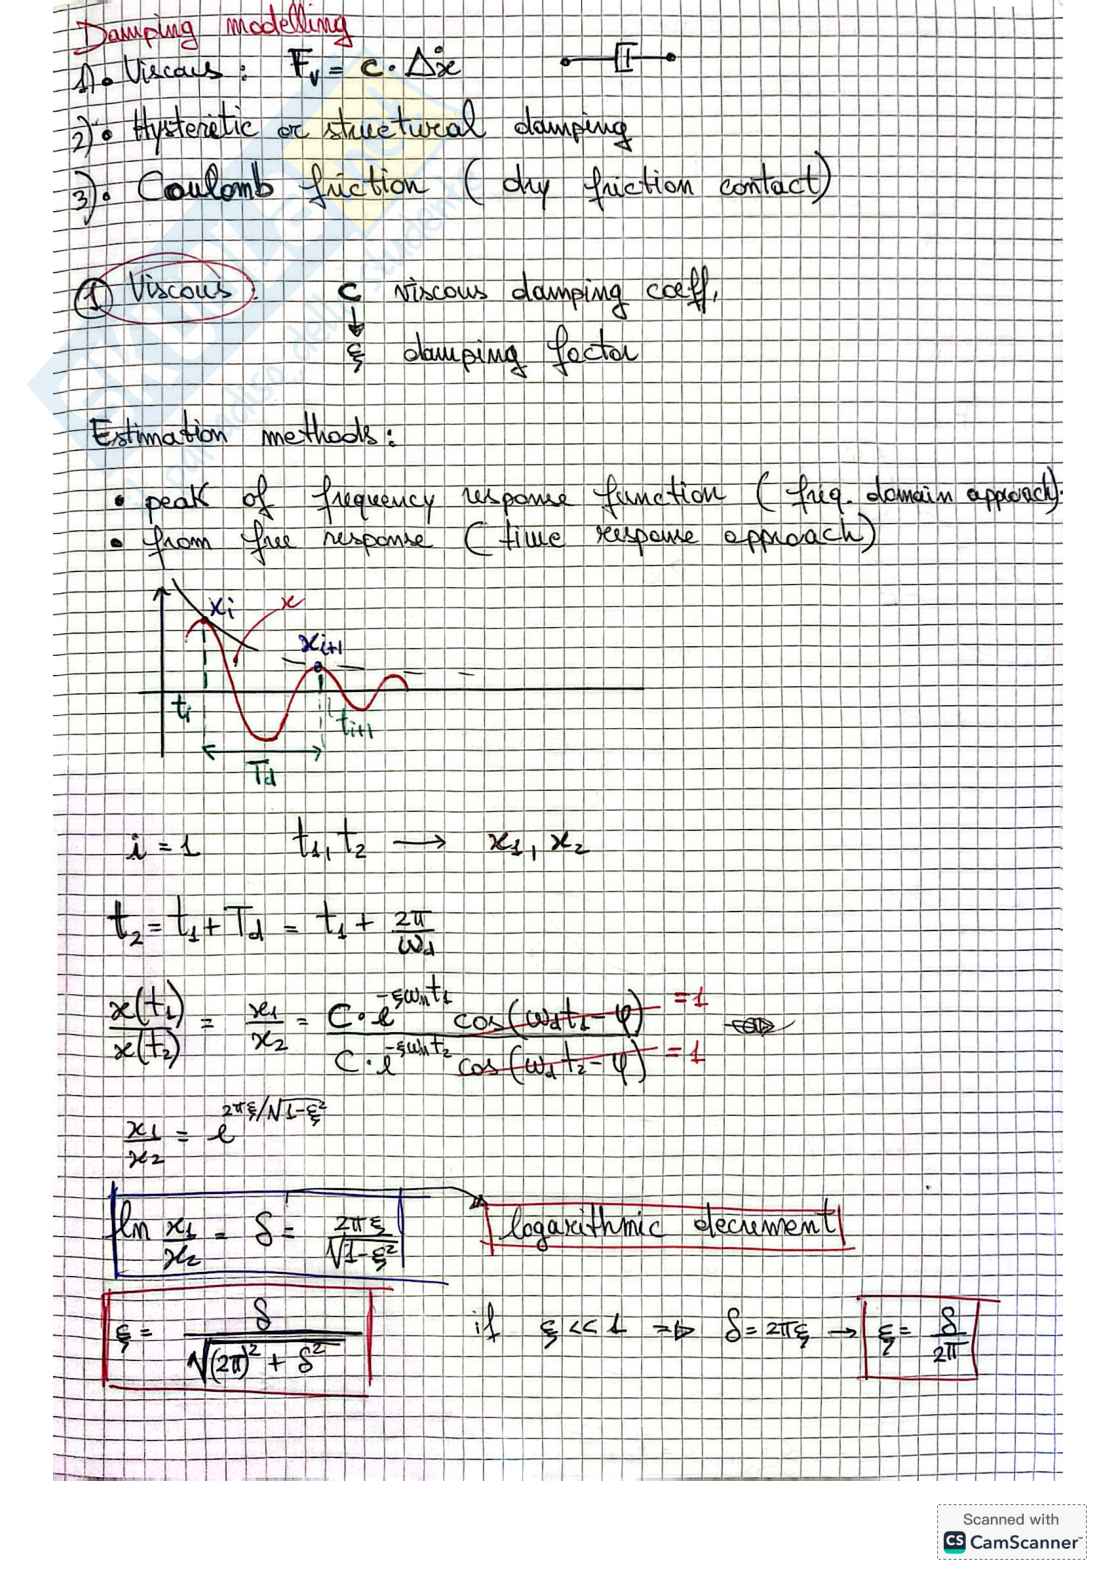 Damping modelling
1)• Viscous: Fv = c · Δẋ
2)• Hysteretic or structural damping
3)• Coulomb friction ( dry friction contact)
① Viscous: c viscous damping coeff.
↓
ξ damping factor
Estimation methods:
• peak of frequency response function ( freq. domain approach).
• from free response ( time response approach)
xi x
xi+1
ti ti+1
Td
i = 1 t1, t2 → x1, x2
t2 = t1 + Td = t1 + 2π/ωd
x(t1)/x(t2) = x1/x2 = C·e^-ξωnt1 cos(ωdt1-φ) =1 / C·e^-ξωnt2 cos(ωdt2-φ) =1
x1/x2 = e^2πξ/√1-ξ²
ln x1/x2 = δ = 2πξ/√1-ξ² → logarithmic decrement
ξ = δ/√(2π)²+δ² if ξ<<1 ⇒ δ=2πξ → ξ = δ/2π
Scanned with
CS CamScanner